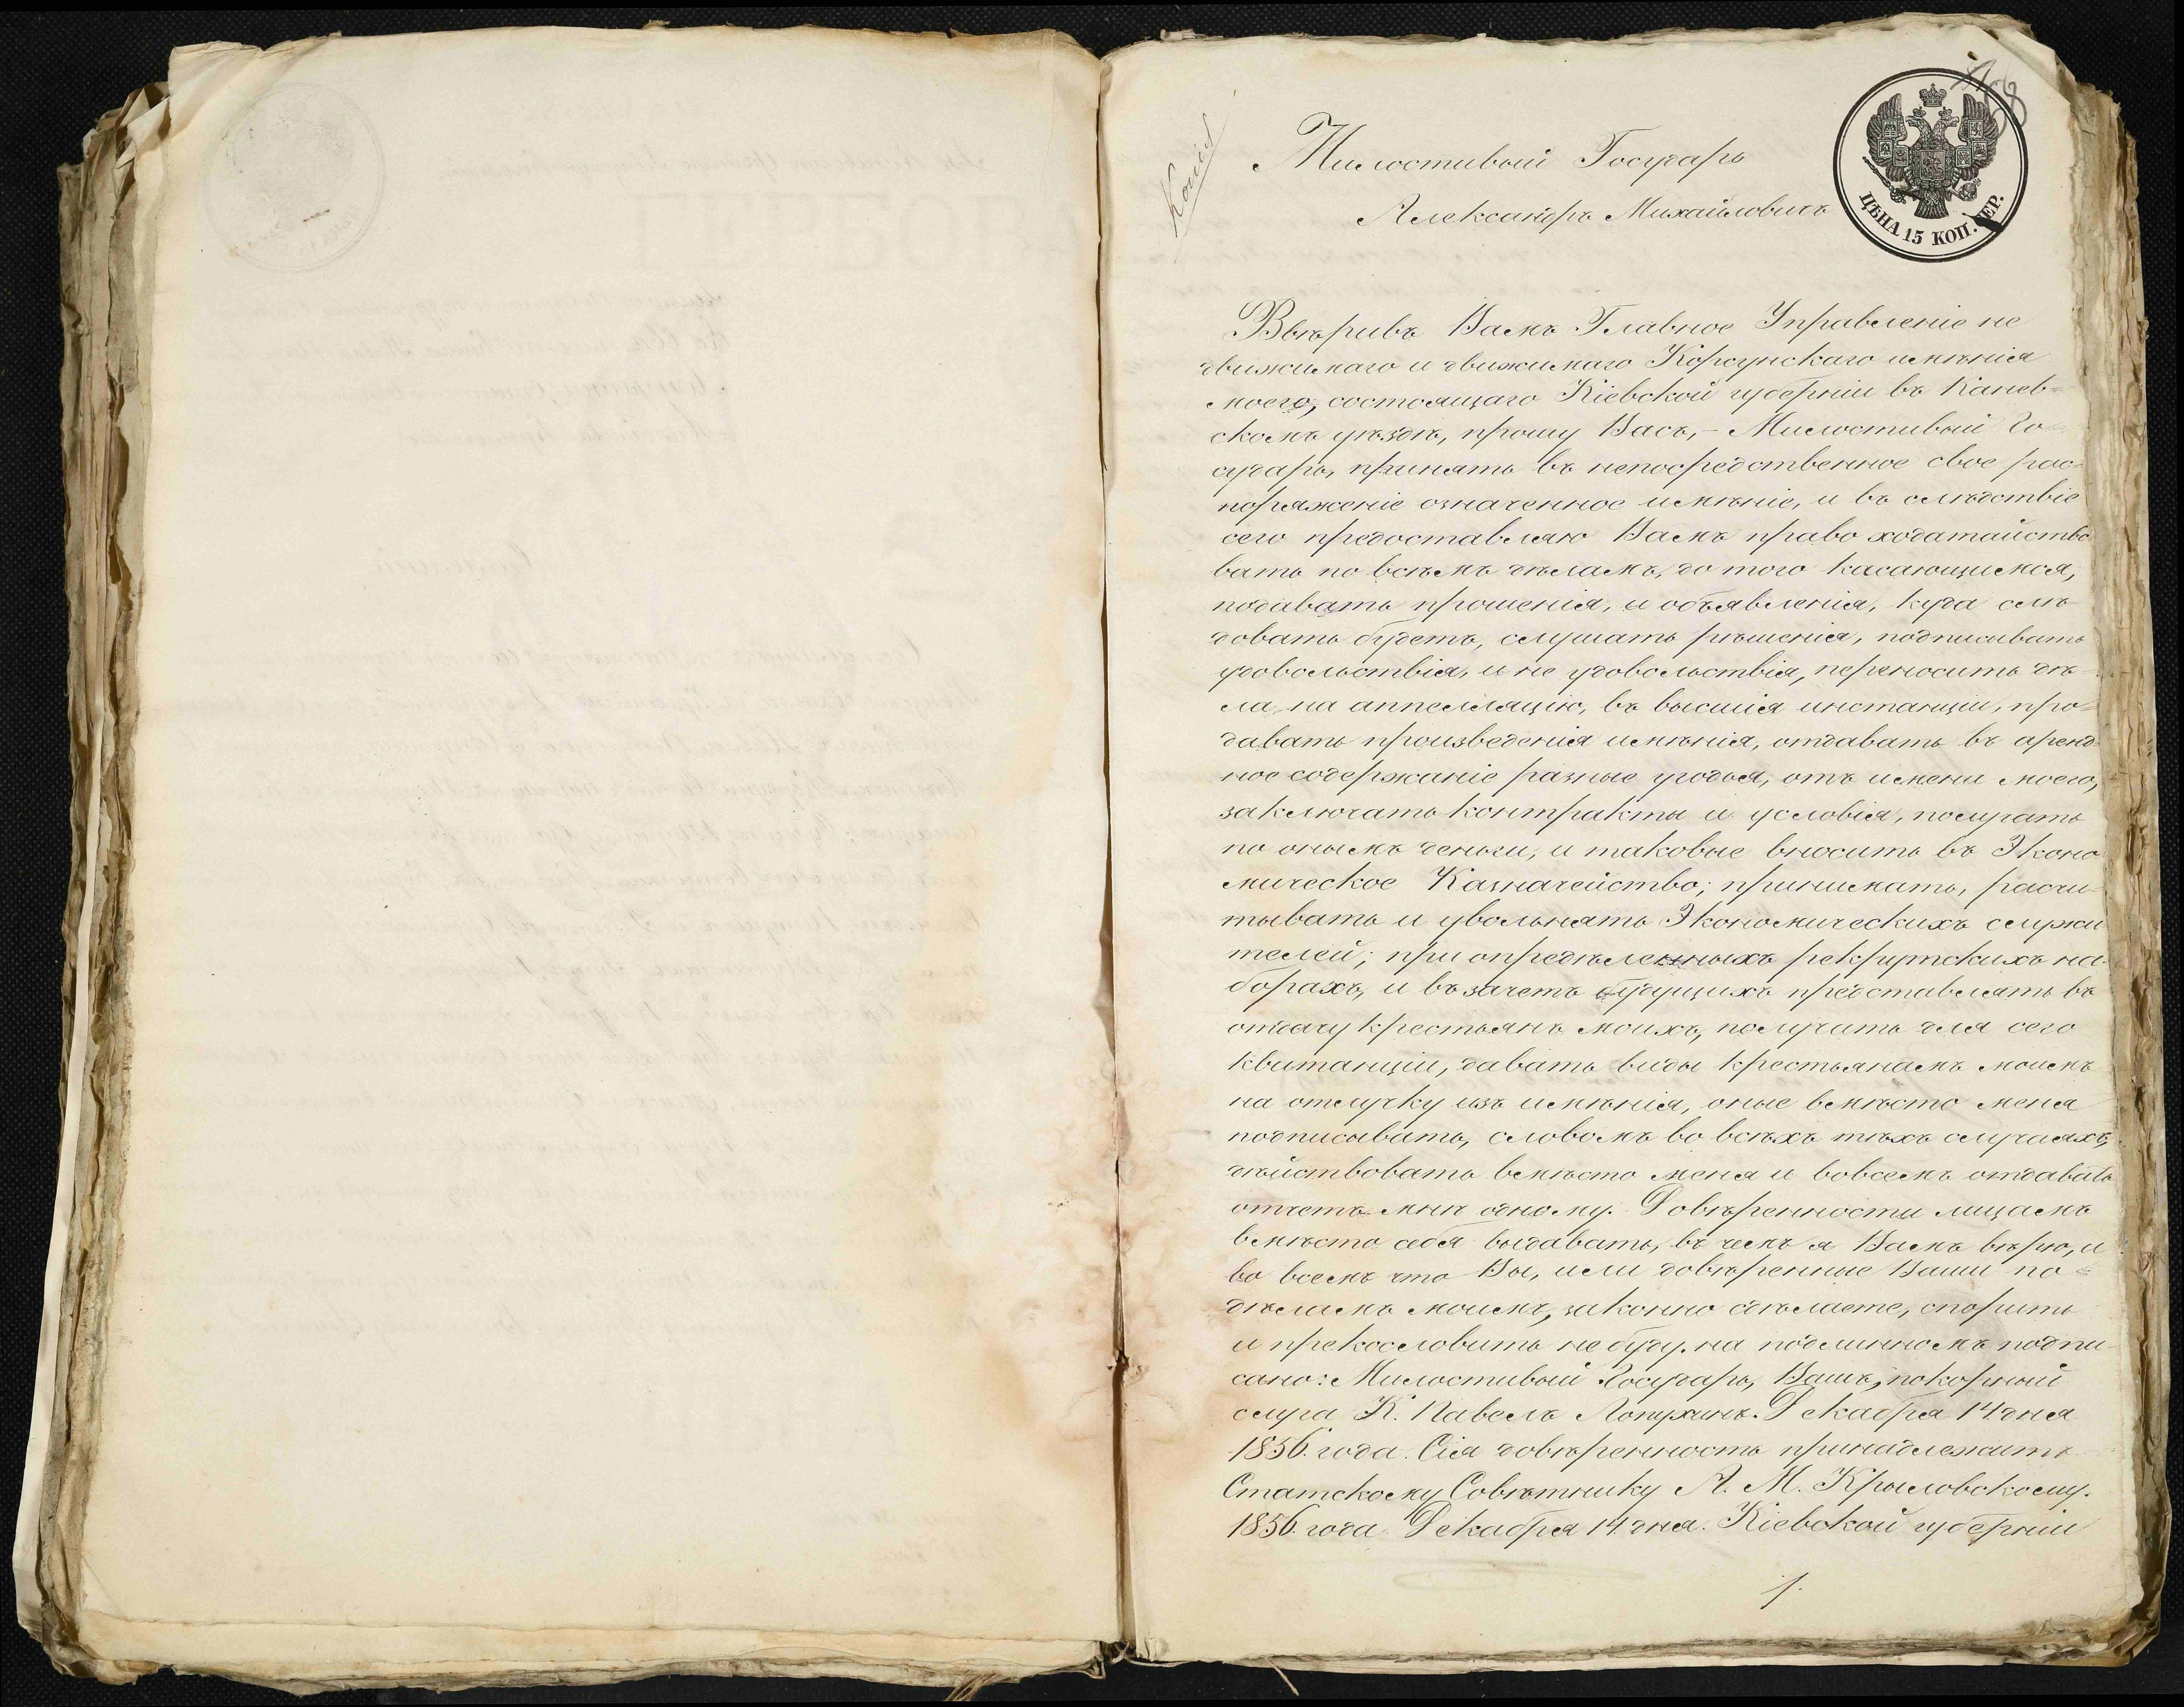 Копія
168
Милостивый Государь
Александръ Михайловичъ
ЦѢНА 15 КОП. СЕР.
Ввѣривъ Вамъ Главное Управленіе не
движимаго и движимаго Корсунскаго имѣнія
моего, состоящаго Кіевской губерніи въ Канев-
скомъ уѣздѣ, прошу Васъ, - Милостивый Го-
сударь, принять въ непосредственное свое рас-
поряженіе означенное имѣніе, и въ слѣдствіе
сего предоставляю Вамъ право ходатайство
вать по всѣмъ дѣламъ, до того касающимся,
подавать прошенія, и объявленія, куда слѣ-
довать будетъ, слушать рѣшенія, подписывать
удовольствія, и не удовольствія, переносить дѣ-
ла, на аппелляцію, въ высшія инстанціи, про-
давать произведенія имѣнія, отдавать въ аренд-
ное содержаніе разные угодья, отъ имени моего,
заключать контракты и условія, получать
по онымъ деньги, и таковые вносить въ Эконо
мическое Казначейство; принимать, расчи-
тывать и увольнять Экономическихъ служи
телей; при опредѣленныхъ рекрутскихъ на-
борахъ, и въ зачетъ будущихъ представлять въ
отдачу крестьянъ моихъ, получать для сего
квитанціи, давать виды крестьянамъ моимъ
на отлучку изъ имѣнія, оные вмѣсто меня
подписывать, словомъ во всѣхъ тѣхъ случаяхъ,
дѣйствовать вмѣсто меня и вовсемъ отдавать
отчетъ мнѣ одному. Довѣренности лицамъ
вмѣсто себя выдавать, въ чемъ я Вамъ вѣрю, и
во всемъ что Вы, или довѣренные Ваши по
дѣламъ моимъ, законно сдѣлаете, спорить
и прекословить не буду. на подлинномъ подпи-
сано: Милостивый Государь, Вашъ, покорный
слуга К. Павелъ Лопухинъ. Декабря 14 дня
1856. года. Сія довѣренность принадлежитъ
Статскому Совѣтнику А. М. Крыловскому.
1856. года. Декабря 14 дня. Кіевской губерніи
1.